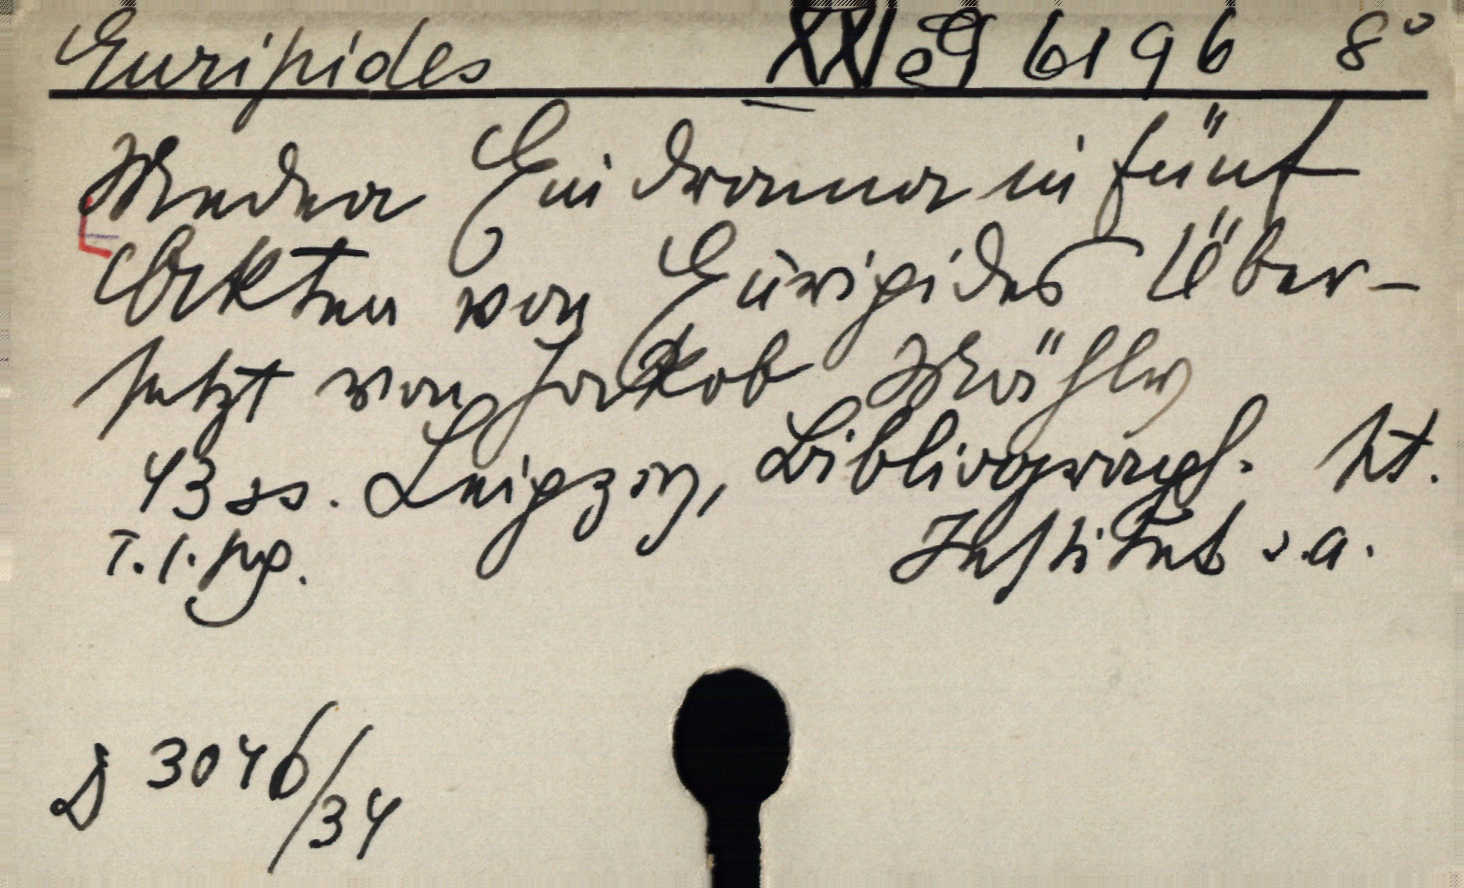 Euripides XXI eg 6196 8°
Medea Ein Drama in fünf
Akten von Euripides Über-
setzt von Jakob Mähly
43 ss. Leipzig, Bibliograph.
T. I. Institut s.a.
S 3046/34